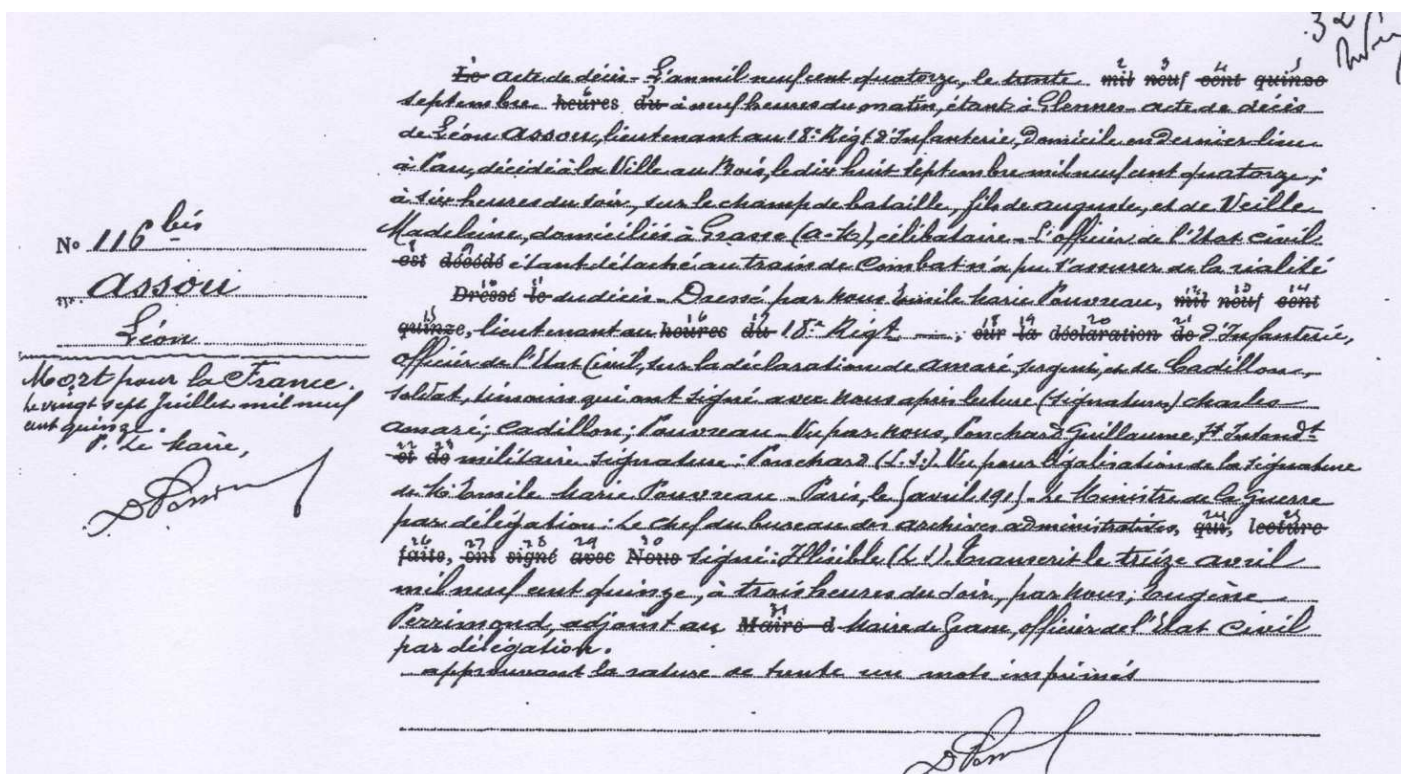 32
Le acte de décès - L'an mil neuf cent quatorze, le trente mil neuf cent quinze
septembre heures du à neuf heures du matin, étant à Glennes - acte de décès
de Léon Assou, lieutenant au 18e Régt d'Infanterie, Domicilié en dernier lieu
à Pau, décédé à la Ville au Bois, le dix huit septembre mil neuf cent quatorze,
à six heures du soir, sur le champ de bataille, fils de auguste, et de Veille
Madeleine, domiciliés à Grasse (a-m), célibataire - L'officier de l'Etat Civil
est décédé étant détaché au train de Combat n'a pu s'assurer de la réalité
Dressé le du décès - Dressé par nous Emile Marie Pouvreau, mil neuf cent
quinze, lieutenant au heures du 18e Régt —, sur la déclaration de d'Infanterie,
officier de l'Etat Civil, sur la déclaration de amaré, sergent, et de Cadillon,
soldat, témoins qui ont signé avec nous après lecture (signatures) charles
amaré; Cadillon; Pouvreau - Vu par nous, Ponchard Guillaume, Intendt
et de militaire signature: Ponchard (L.S.). Vu pour légalisation de la signature
de M. Emile Marie Pouvreau - Paris, le 5 avril 1915 - Le Ministre de la guerre
par délégation: Le chef du bureau des archives administratives, qui, lecture
faite, ont signé avec Nous signé: Illisible (L.S). Transcrit le treize avril
mil neuf cent quinze, à trois heures du soir, par nous, Eugène
Perrimond, adjoint au Maire d Maire de Grasse, officier de l'Etat Civil
par délégation.
approuvant la rature de trente un mots imprimés
No 116 bis
Assou
Léon
Mort pour la France.
Le vingt sept Juillet mil neuf
cent quinze.
P. Le Maire,